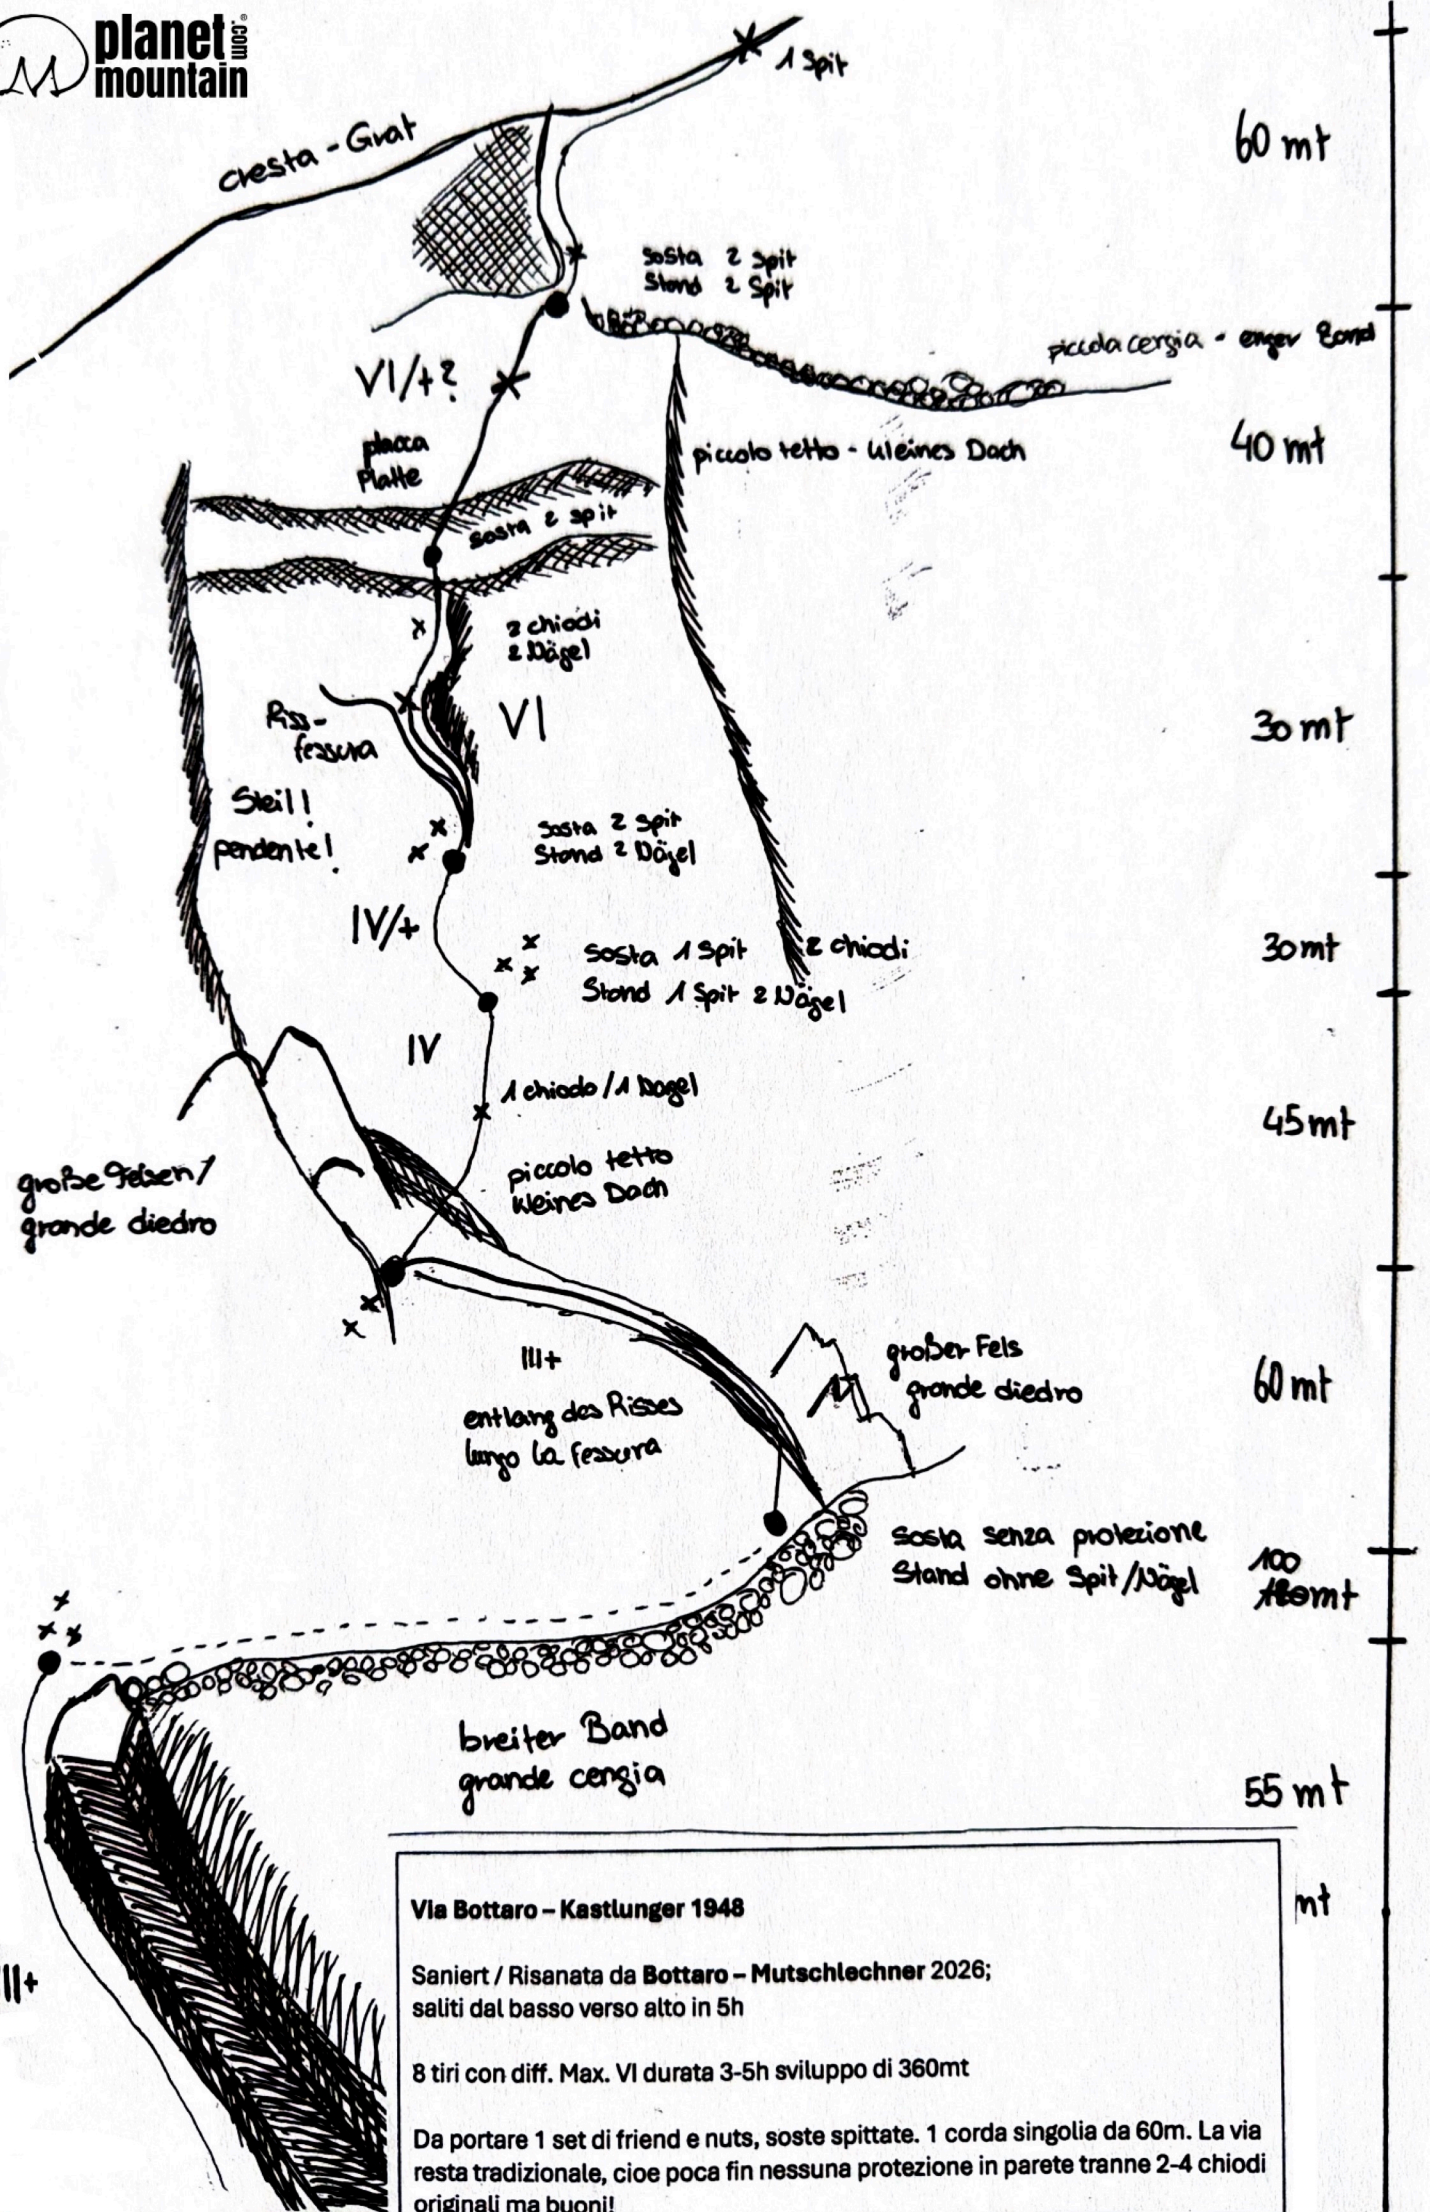 planet
mountain
.com
®
1 Spit
60 mt
cresta - Grat
sosta 2 spit
Stand 2 Spit
piccola cergia - enger Band
VI/+?
40 mt
placca
Platte
piccolo tetto - kleines Dach
sosta 2 spit
2 chiodi
2 Nägel
Riss-
fessura
VI
30 mt
Steil!
pendente!
sosta 2 spit
Stand 2 Nägel
IV/+
sosta 1 Spit
2 chiodi
30 mt
Stand 1 Spit 2 Nägel
IV
1 chiodo / 1 Nagel
45 mt
piccolo tetto
kleines Dach
große Felsen /
grande diedro
III+
großer Fels
grande diedro
60 mt
entlang des Risses
lungo la fessura
sosta senza protezione
Stand ohne Spit/Nägel
100
mt
breiter Band
grande cengia
55 mt
mt
III+
Via Bottaro – Kastlunger 1948
Saniert / Risanata da Bottaro – Mutschlechner 2026;
saliti dal basso verso alto in 5h
8 tiri con diff. Max. VI durata 3-5h sviluppo di 360mt
Da portare 1 set di friend e nuts, soste spittate. 1 corda singolia da 60m. La via
resta tradizionale, cioe poca fin nessuna protezione in parete tranne 2-4 chiodi
originali ma buoni!